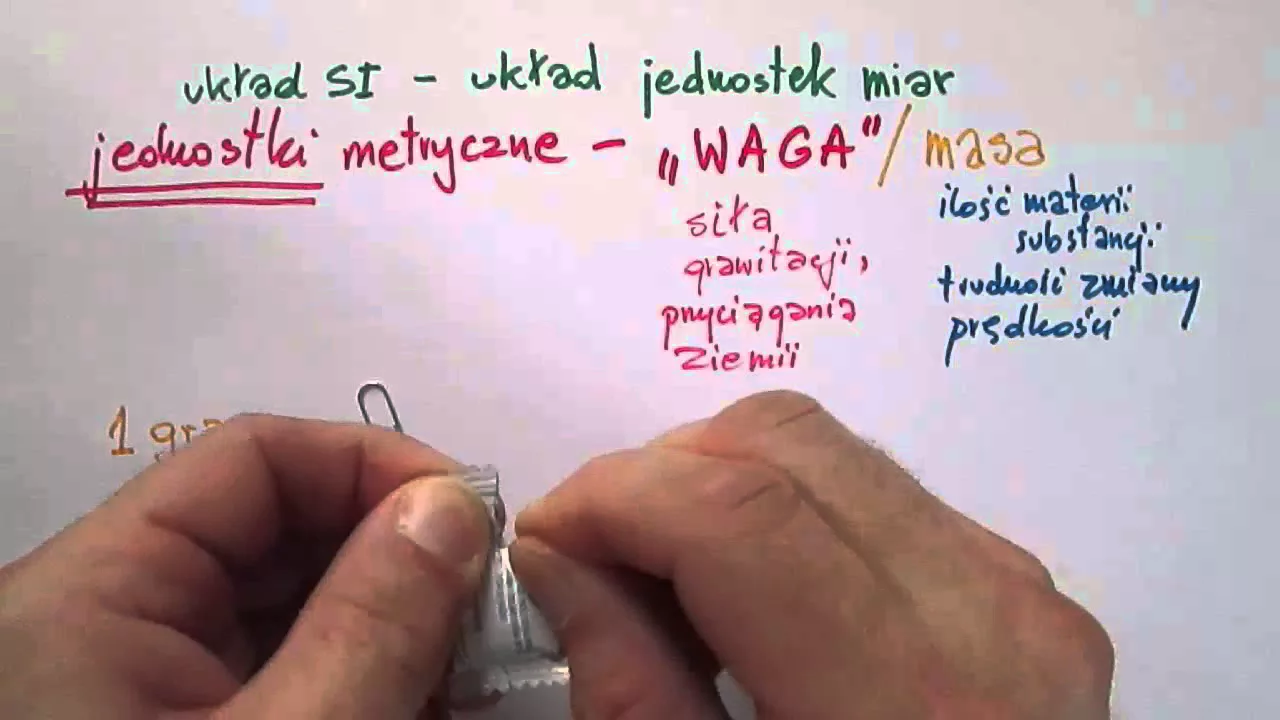 układ SI - układ jednostek miar
jednostki metryczne - „WAGA"/masa
siła
grawitacji,
przyciągania
ziemii
ilość materii
substancji
trudność zmiany
prędkości
1 gra